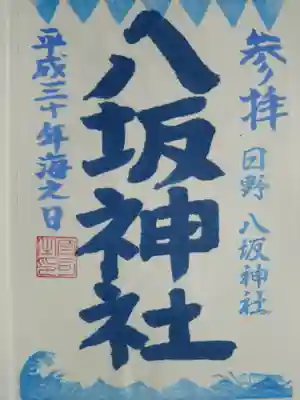 参拝 日野 八坂神社
八坂神社
平成三十年海之日